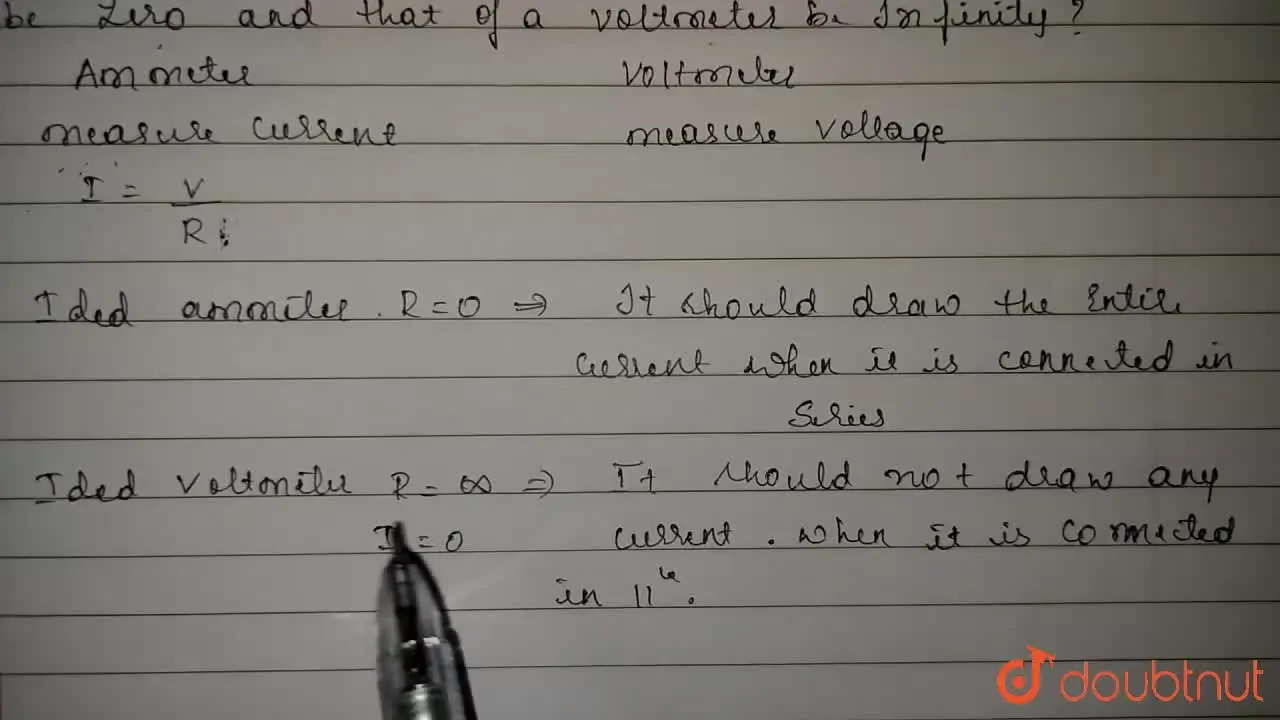 be zero and that of a voltmeter be Infinity?
Ammeter voltmeter
measure current measure voltage
I = V
R
Ideal ammeter. R=0 ⇒ It should draw the Entire
current when it is connected in
Series
Ideal voltmeter R = ∞ ⇒ It should not draw any
I = 0 current. when it is connected
in 11le.
doubtnut